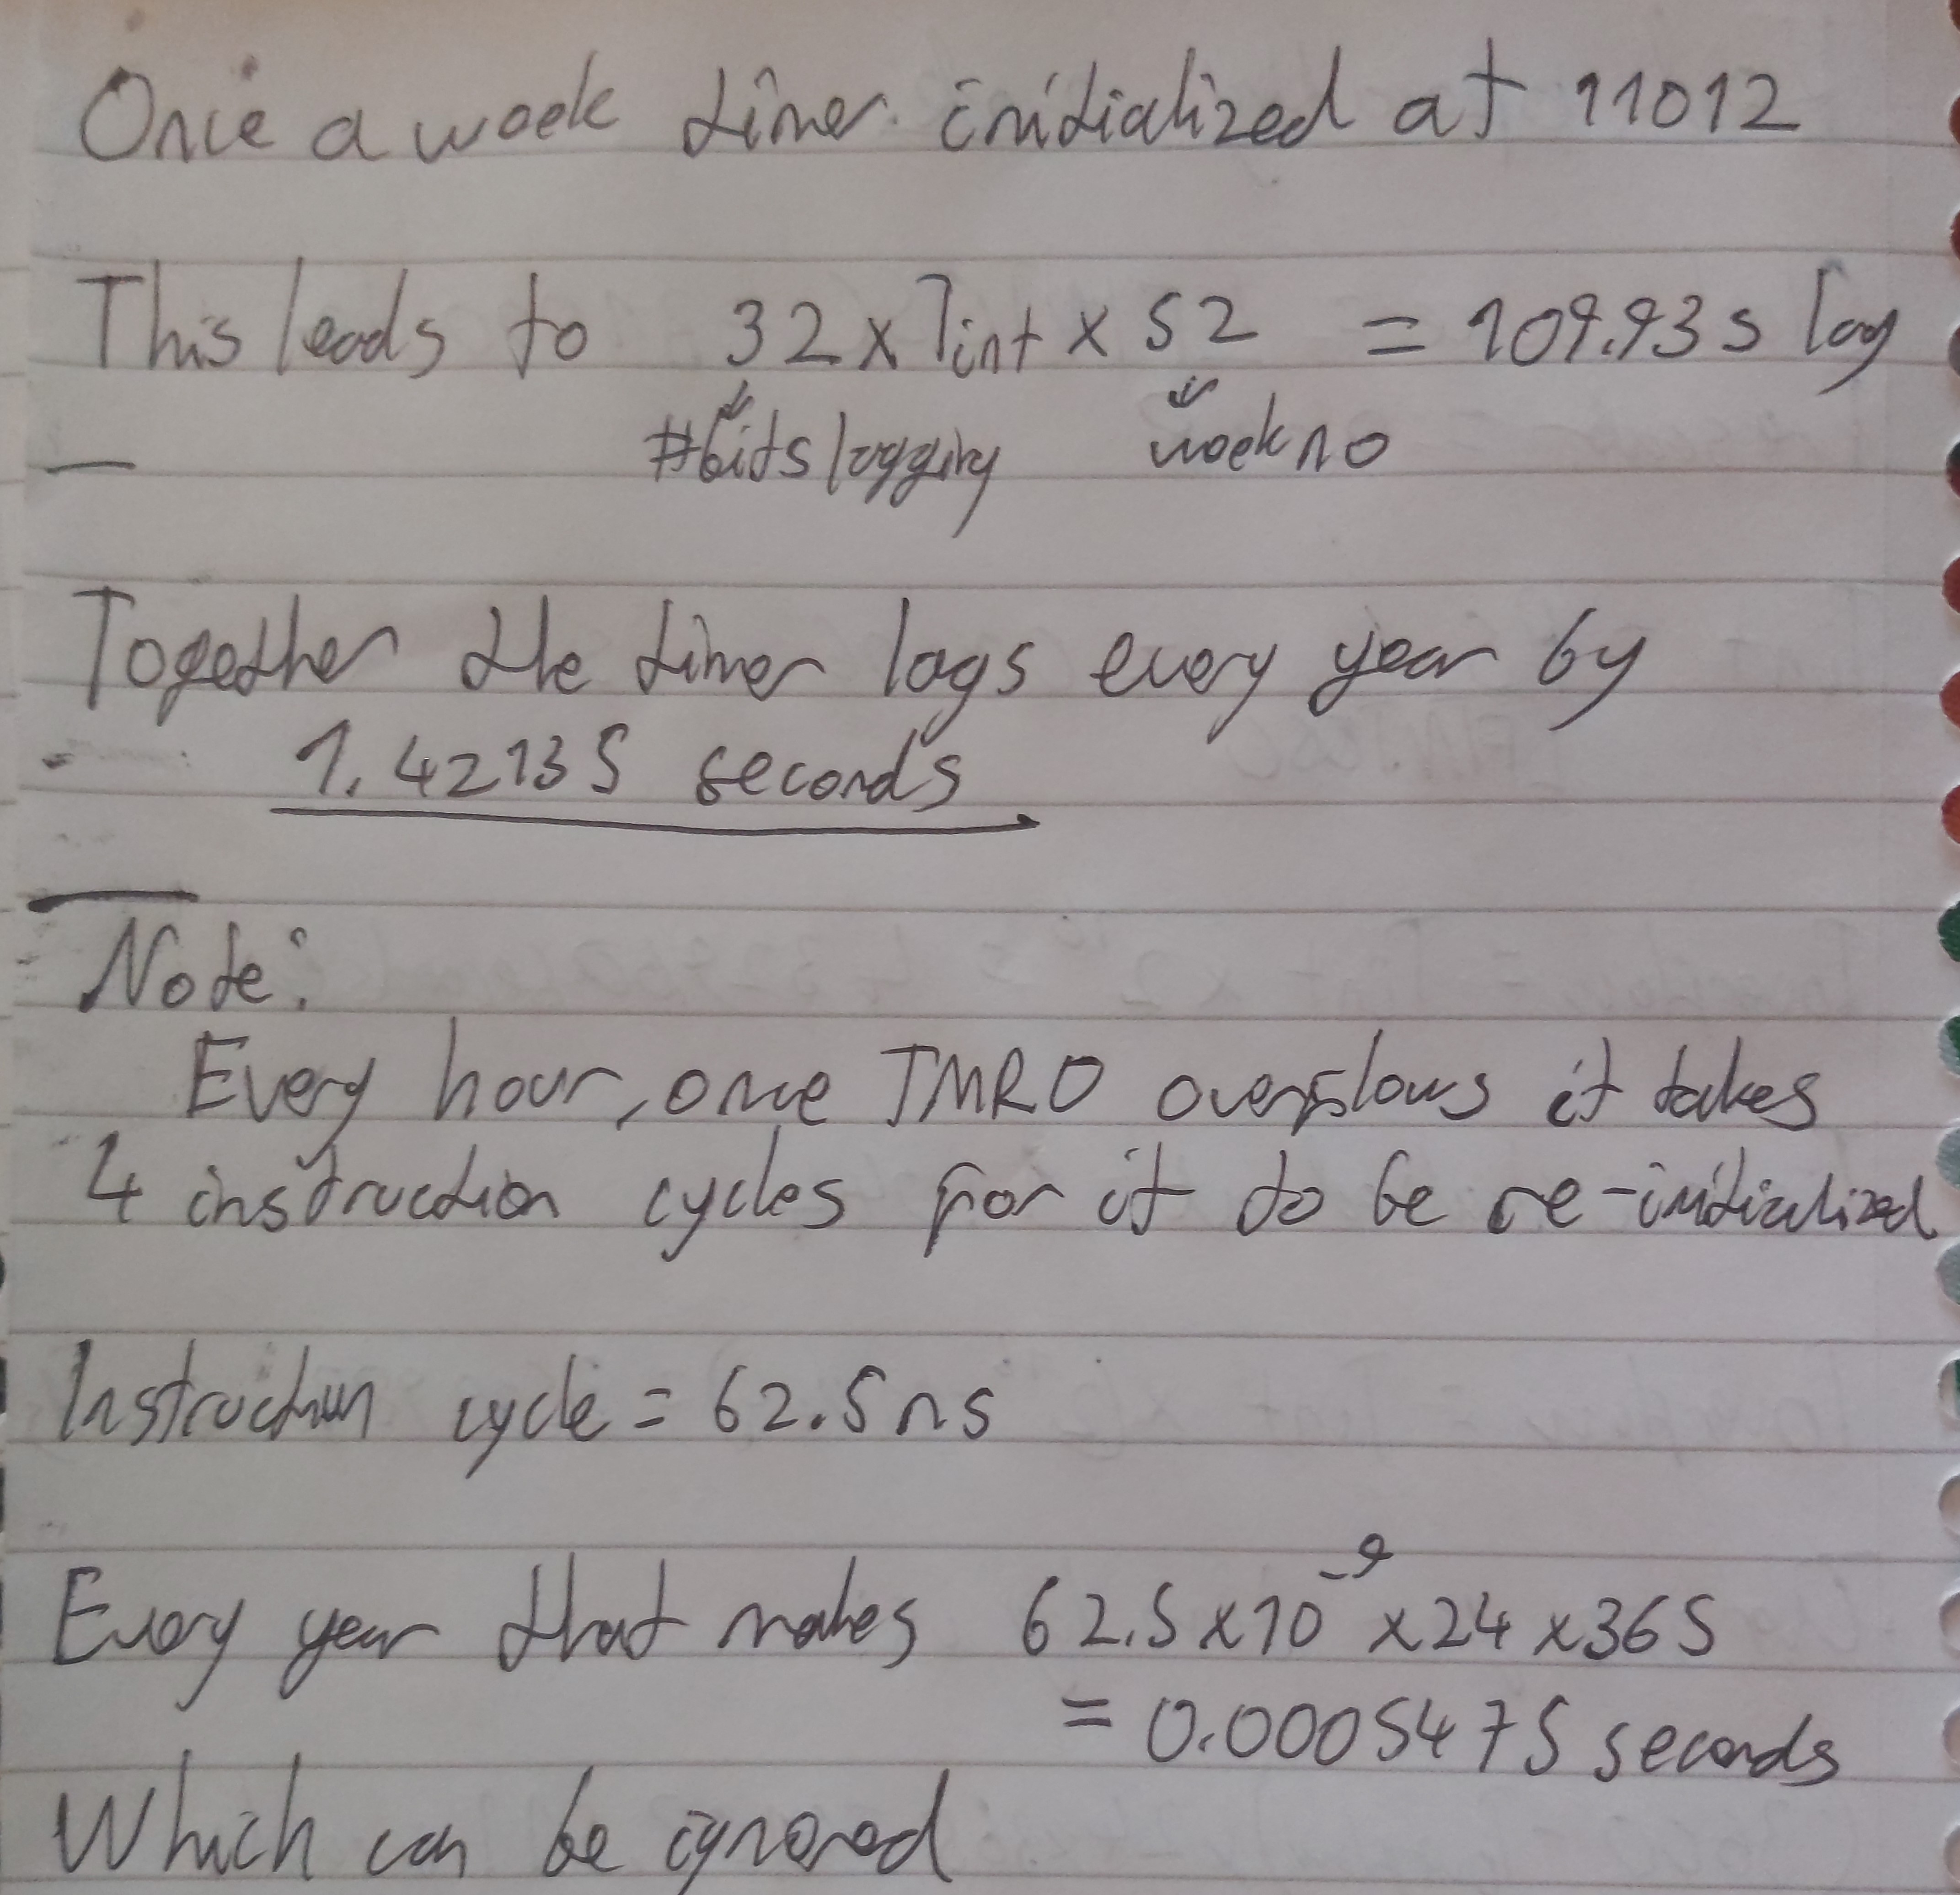 Once a week timer initialized at 11012
This leads to 32 x Tint x 52 = 109.93 s lag
#bits lagging week no
Together the timer lags every year by
1.42135 seconds
Note:
Every hour, once TMR0 overflows it takes
4 instruction cycles for it to be re-initialized
Instruction cycle = 62.5 ns
Every year that makes 62.5 x 10⁻⁹ x 24 x 365
= 0.0005475 seconds
Which can be ignored